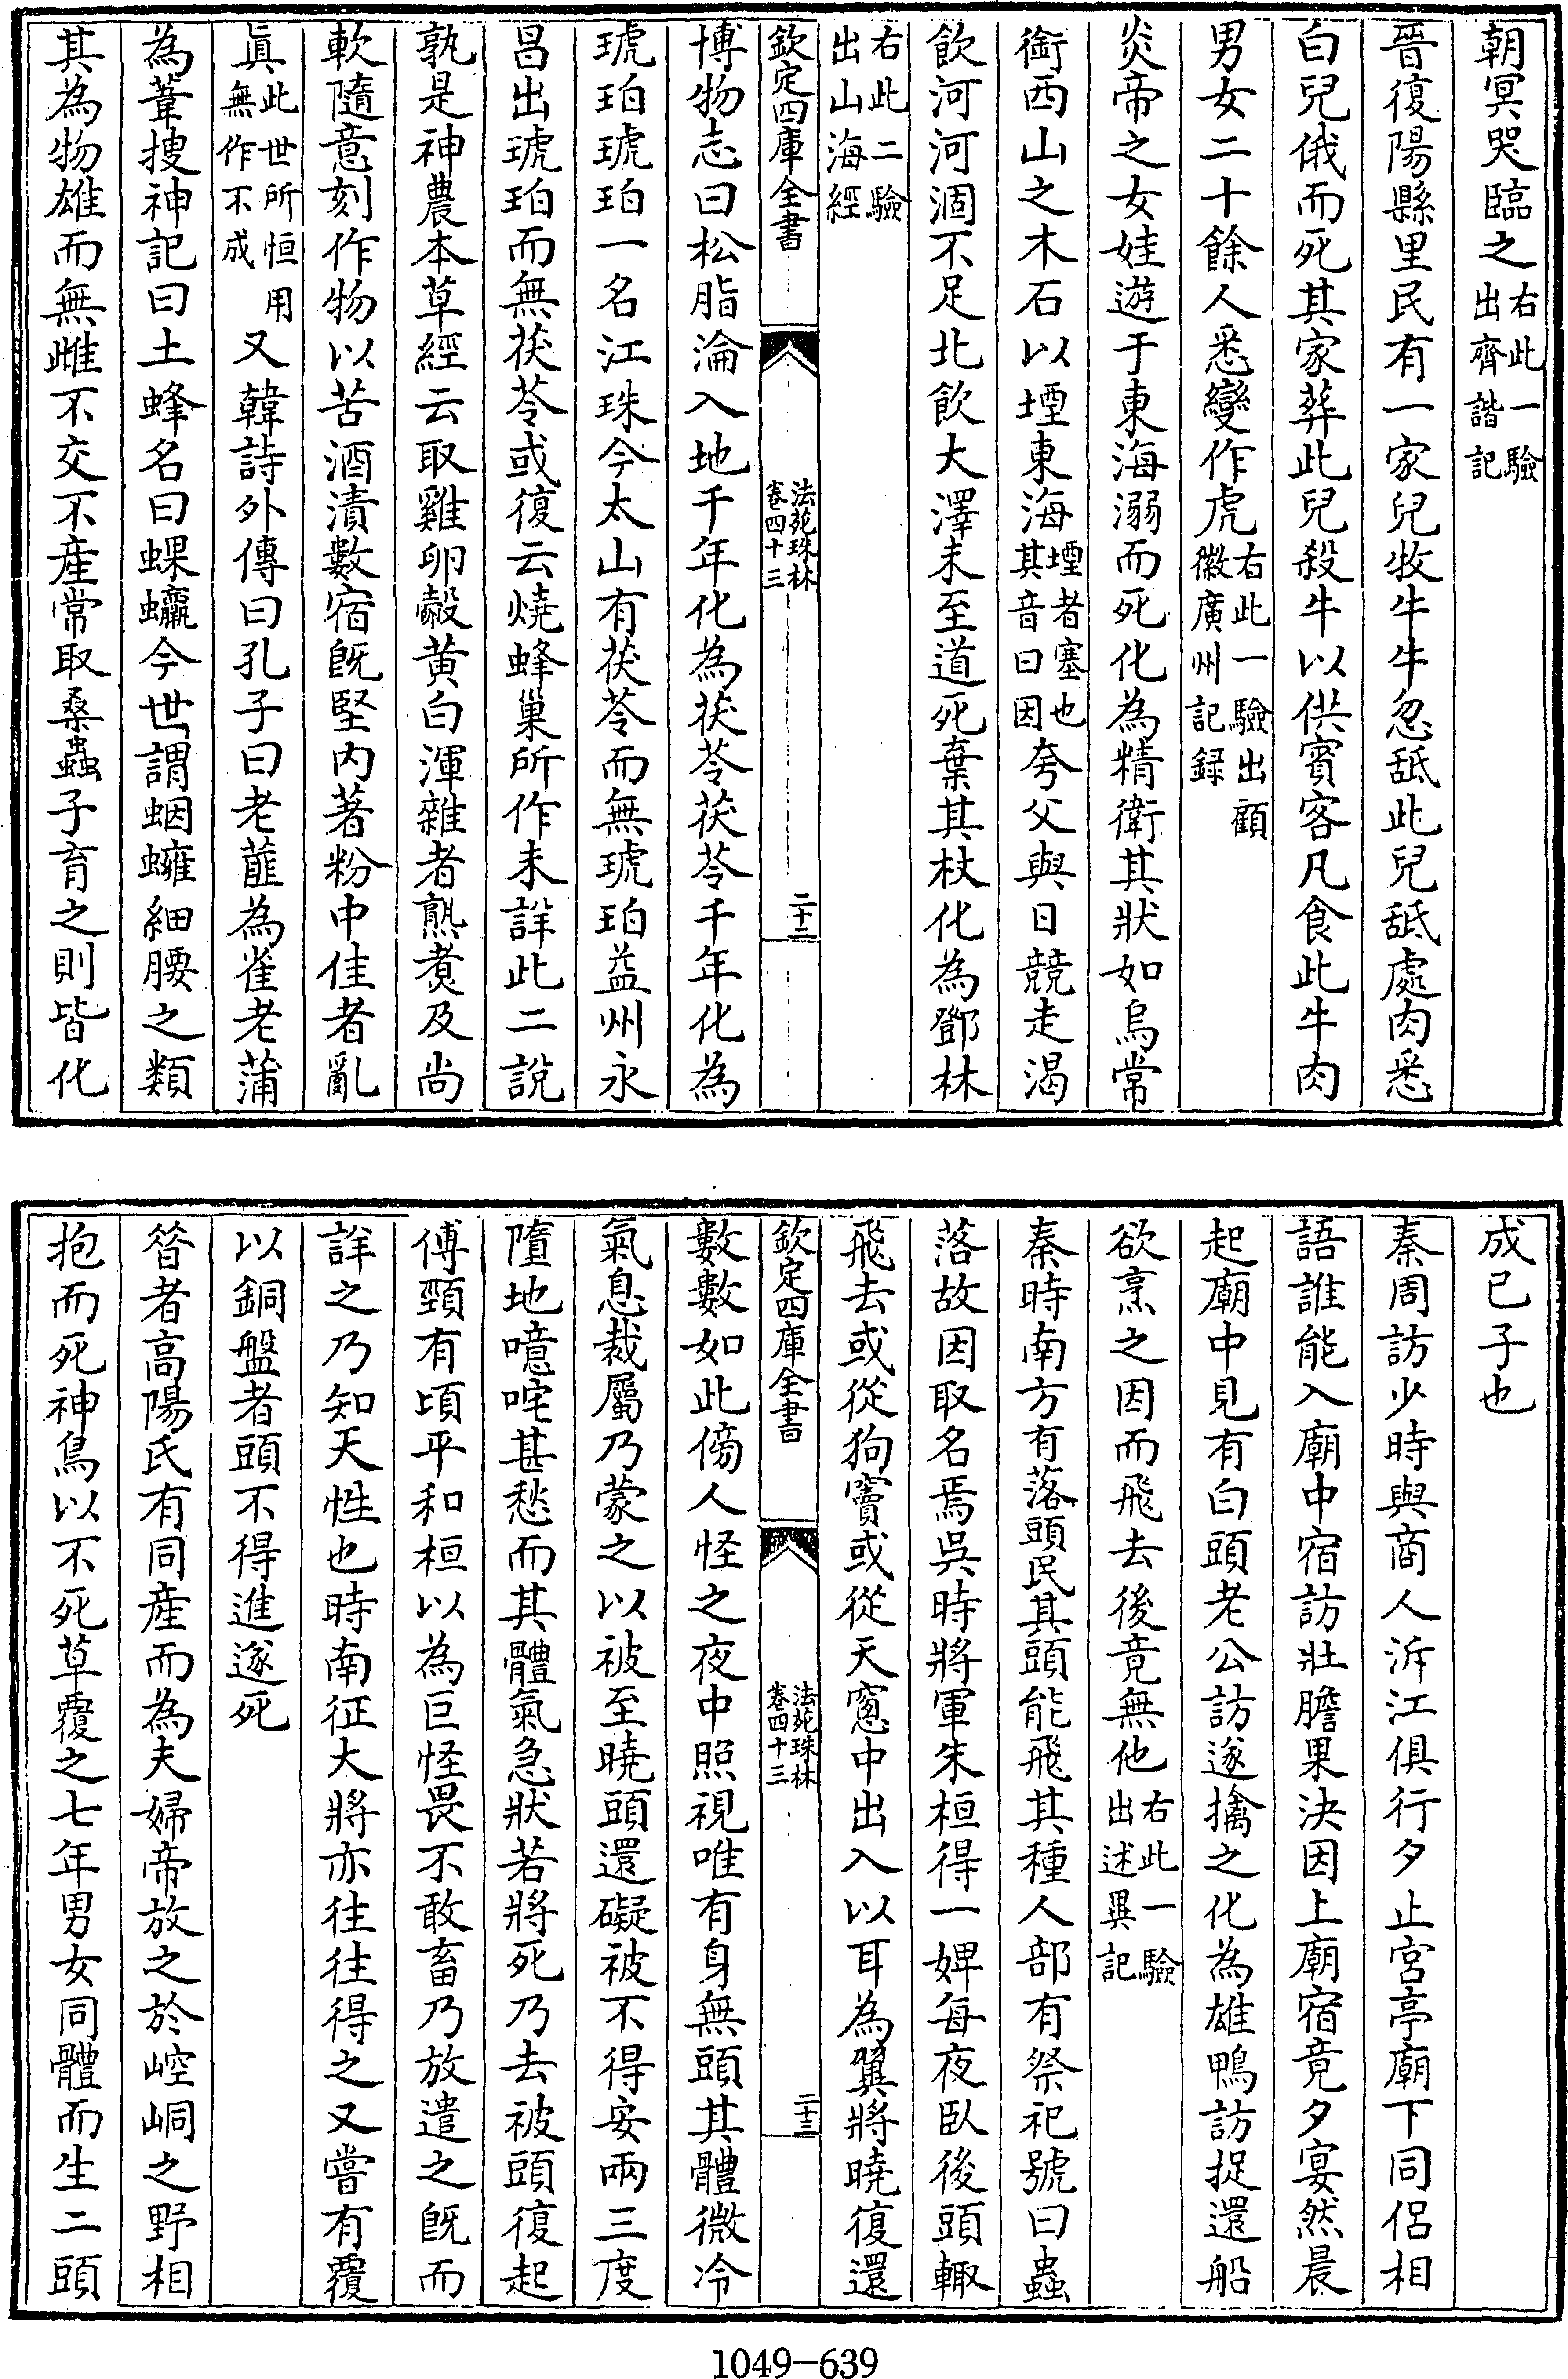 朝冥哭臨之右此一驗出齊諧記
晉復陽縣里民有一家兒牧牛牛忽舐此兒舐處肉悉
白兒俄而死其家葬此兒殺牛以供賓客凡食此牛肉
男女二十餘人悉變作虎右此一驗出顧徽廣州記録
炎帝之女娃遊于東海溺而死化為精衛其狀如烏常
銜西山之木石以堙東海堙者塞也其音曰因夸父與日競走渴
飲河河涸不足北飲大澤未至道死棄其杖化為鄧林
右此二驗出山海經
欽定四庫全書 法苑珠林卷四十三 二十二
博物志曰松脂淪入地千年化為茯苓茯苓千年化為
琥珀琥珀一名江珠今太山有茯苓而無琥珀益州永
昌出琥珀而無茯苓或復云燒蜂巢所作未詳此二說
孰是神農本草經云取雞卵㲉黄白渾雜者熟煑及尚
軟隨意刻作物以苦酒漬數宿旣堅内著粉中佳者亂
真此世所恒用無作不成又韓詩外傳曰孔子曰老韮為雀老蒲
為葦搜神記曰土蜂名曰蜾蠃今世謂蜠蠮細腰之類
其為物雄而無雌不交不産常取桑蟲子育之則皆化
成已子也
秦周訪少時與商人泝江俱行夕止宮亭廟下同侣相
語誰能入廟中宿訪壯膽果決因上廟宿竟夕宴然晨
起廟中見有白頭老公訪遂擒之化為雄鴨訪捉還船
欲烹之因而飛去後竟無他右此一驗出述異記
秦時南方有落頭民其頭能飛其種人部有祭祀號曰蟲
落故因取名焉吳時將軍朱桓得一婢每夜臥後頭輙
飛去或從狗竇或從天窻中出入以耳為翼將曉復還
欽定四庫全書 法苑珠林卷四十三 二十三
數數如此傍人怪之夜中照視唯有身無頭其體微冷
氣息裁屬乃蒙之以被至曉頭還礙被不得安兩三度
墮地噫咤甚愁而其體氣急狀若將死乃去被頭復起
傅頸有頃平和桓以為巨怪畏不敢畜乃放遣之旣而
詳之乃知天性也時南征大將亦往往得之又嘗有覆
以銅盤者頭不得進遂死
昝者高陽氏有同産而為夫婦帝放之於崆峒之野相
抱而死神鳥以不死草覆之七年男女同體而生二頭
1049-639